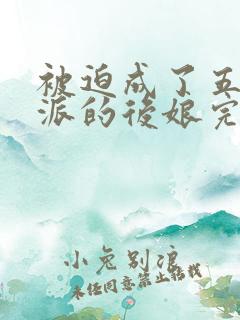 被迫成了五
派的後娘完
小兔别浪
未经同意禁止转载